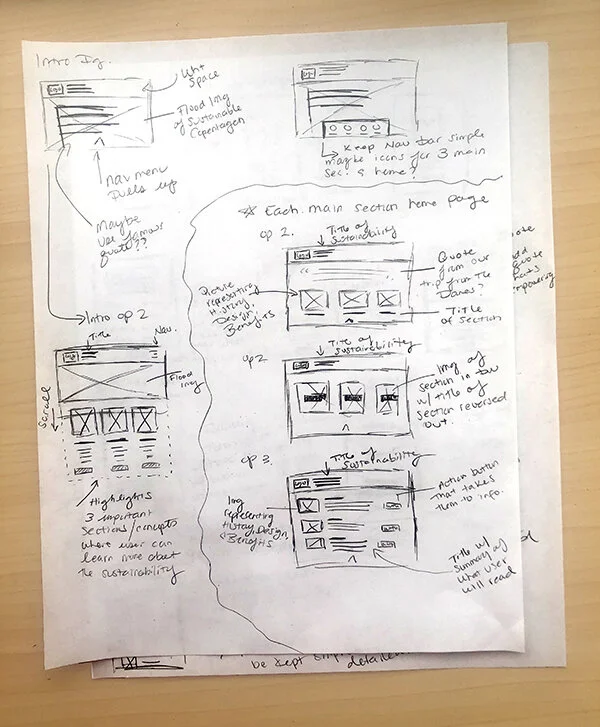 Intro Pg.
Logo
Wht
Space
Flood Img
of Sustainable
Copenhagen
Nav menu
Pulls up
Maybe
use famous
quote??
Logo
Keep Nav bar simple
maybe icons for 3 main
sec. & home?
Intro op 2
Title
Nav.
Logo
Flood
img
Scroll
Highlights
3 important
sections/concepts
where user can
learn more about
the sustainability
Each main section home page
op 2.
Title of
Sustainability
Logo
Quote
from our
trip from the
Danes?
Picture
representing
History,
Design,
Benefits
Title
of section
op 2
Title of
Sustainability
Logo
Img of
section in
w/ title of
section reversed
out.
op 3.
Title of
Sustainability
Logo
Img
representing
History, Design,
Benefits
Action button
that takes
them to info.
Title w/
summary of
what user
will read
quote
be kept simp